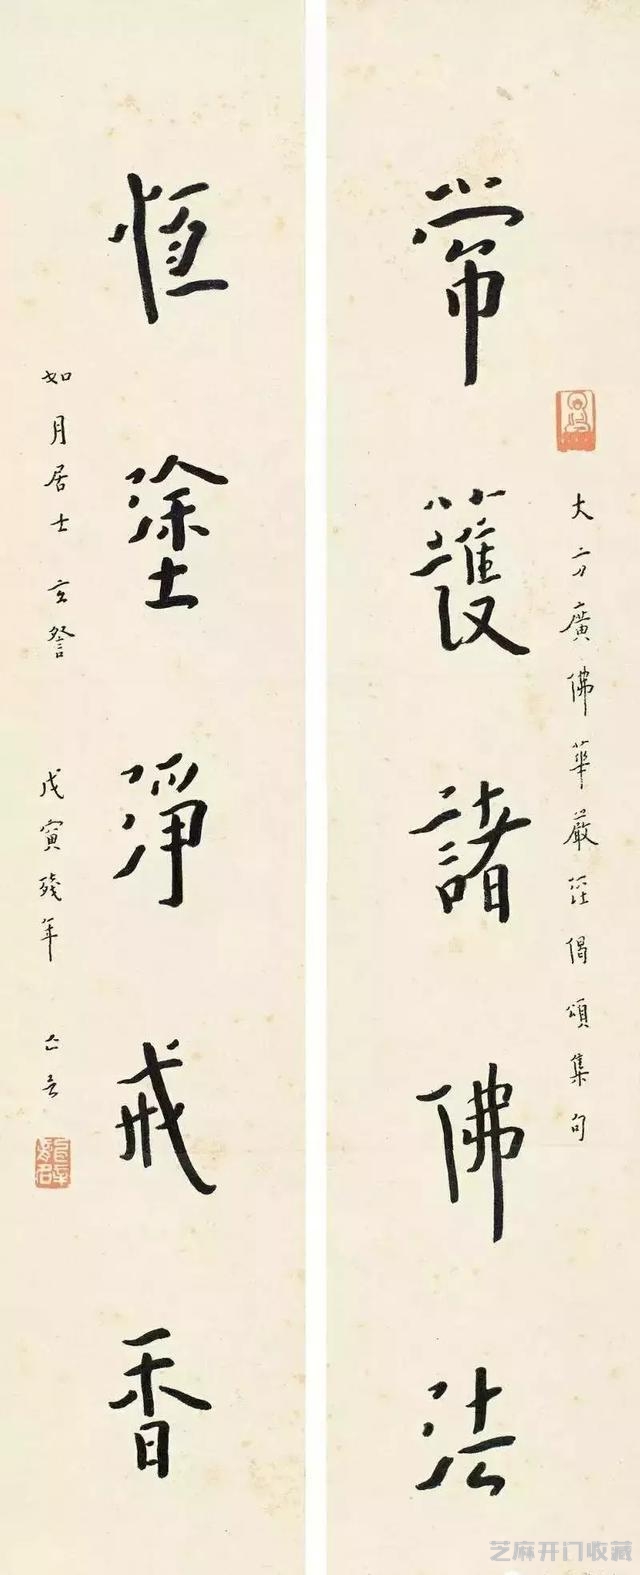 大方廣佛華嚴經偈頌集句
常護諸佛法
恆塗淨戒香
如月居士玄詧
戊寅殘年 亡言
芝麻开门收藏